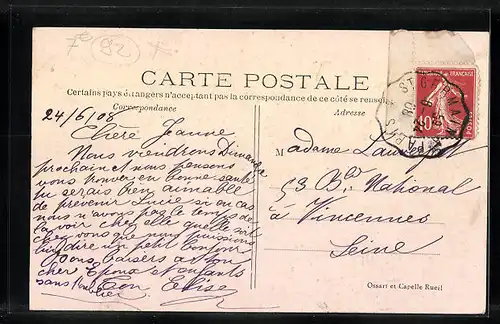 7e
92
CARTE POSTALE
Certains pays étrangers n'acceptant pas la correspondance de ce côté se renseigner
Correspondance
Adresse
24/6/08
Chère Jeanne
Nous viendrons Dimanche
prochain et nous pensons
vous trouver en bonne santé
tu serais bien aimable
de prévenir Lucie si au cas
nous n'avons pas le temps de
la voir chez elle quelle soit
chez vous que nous puissions
lui dire un petit bonjour
Bons baisers à ton
cher Epoux et enfants
sans l'oublier Ton Elise
Madame
53 Bd National
à Vincennes
Seine
FRANÇAISE
10
POSTES
Ossart et Capelle Rueil